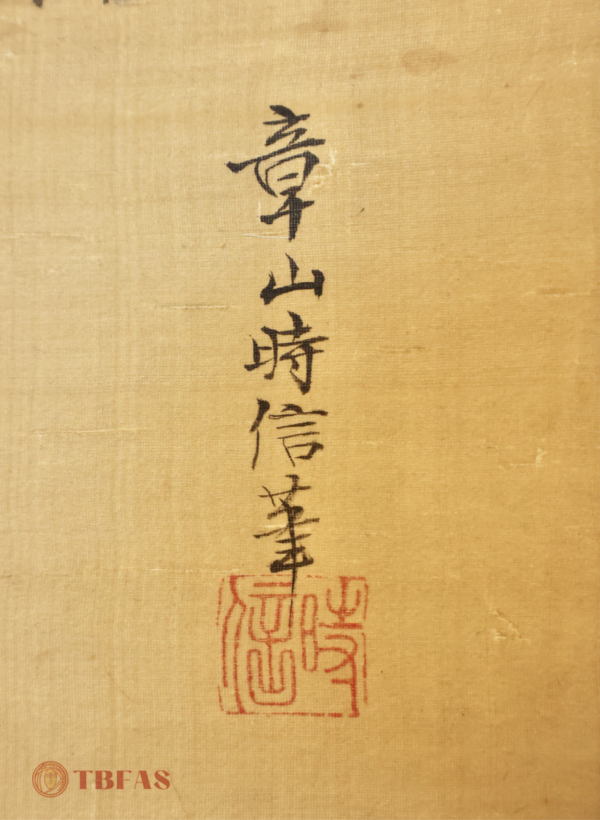 章山時信筆
時信
TBFAS